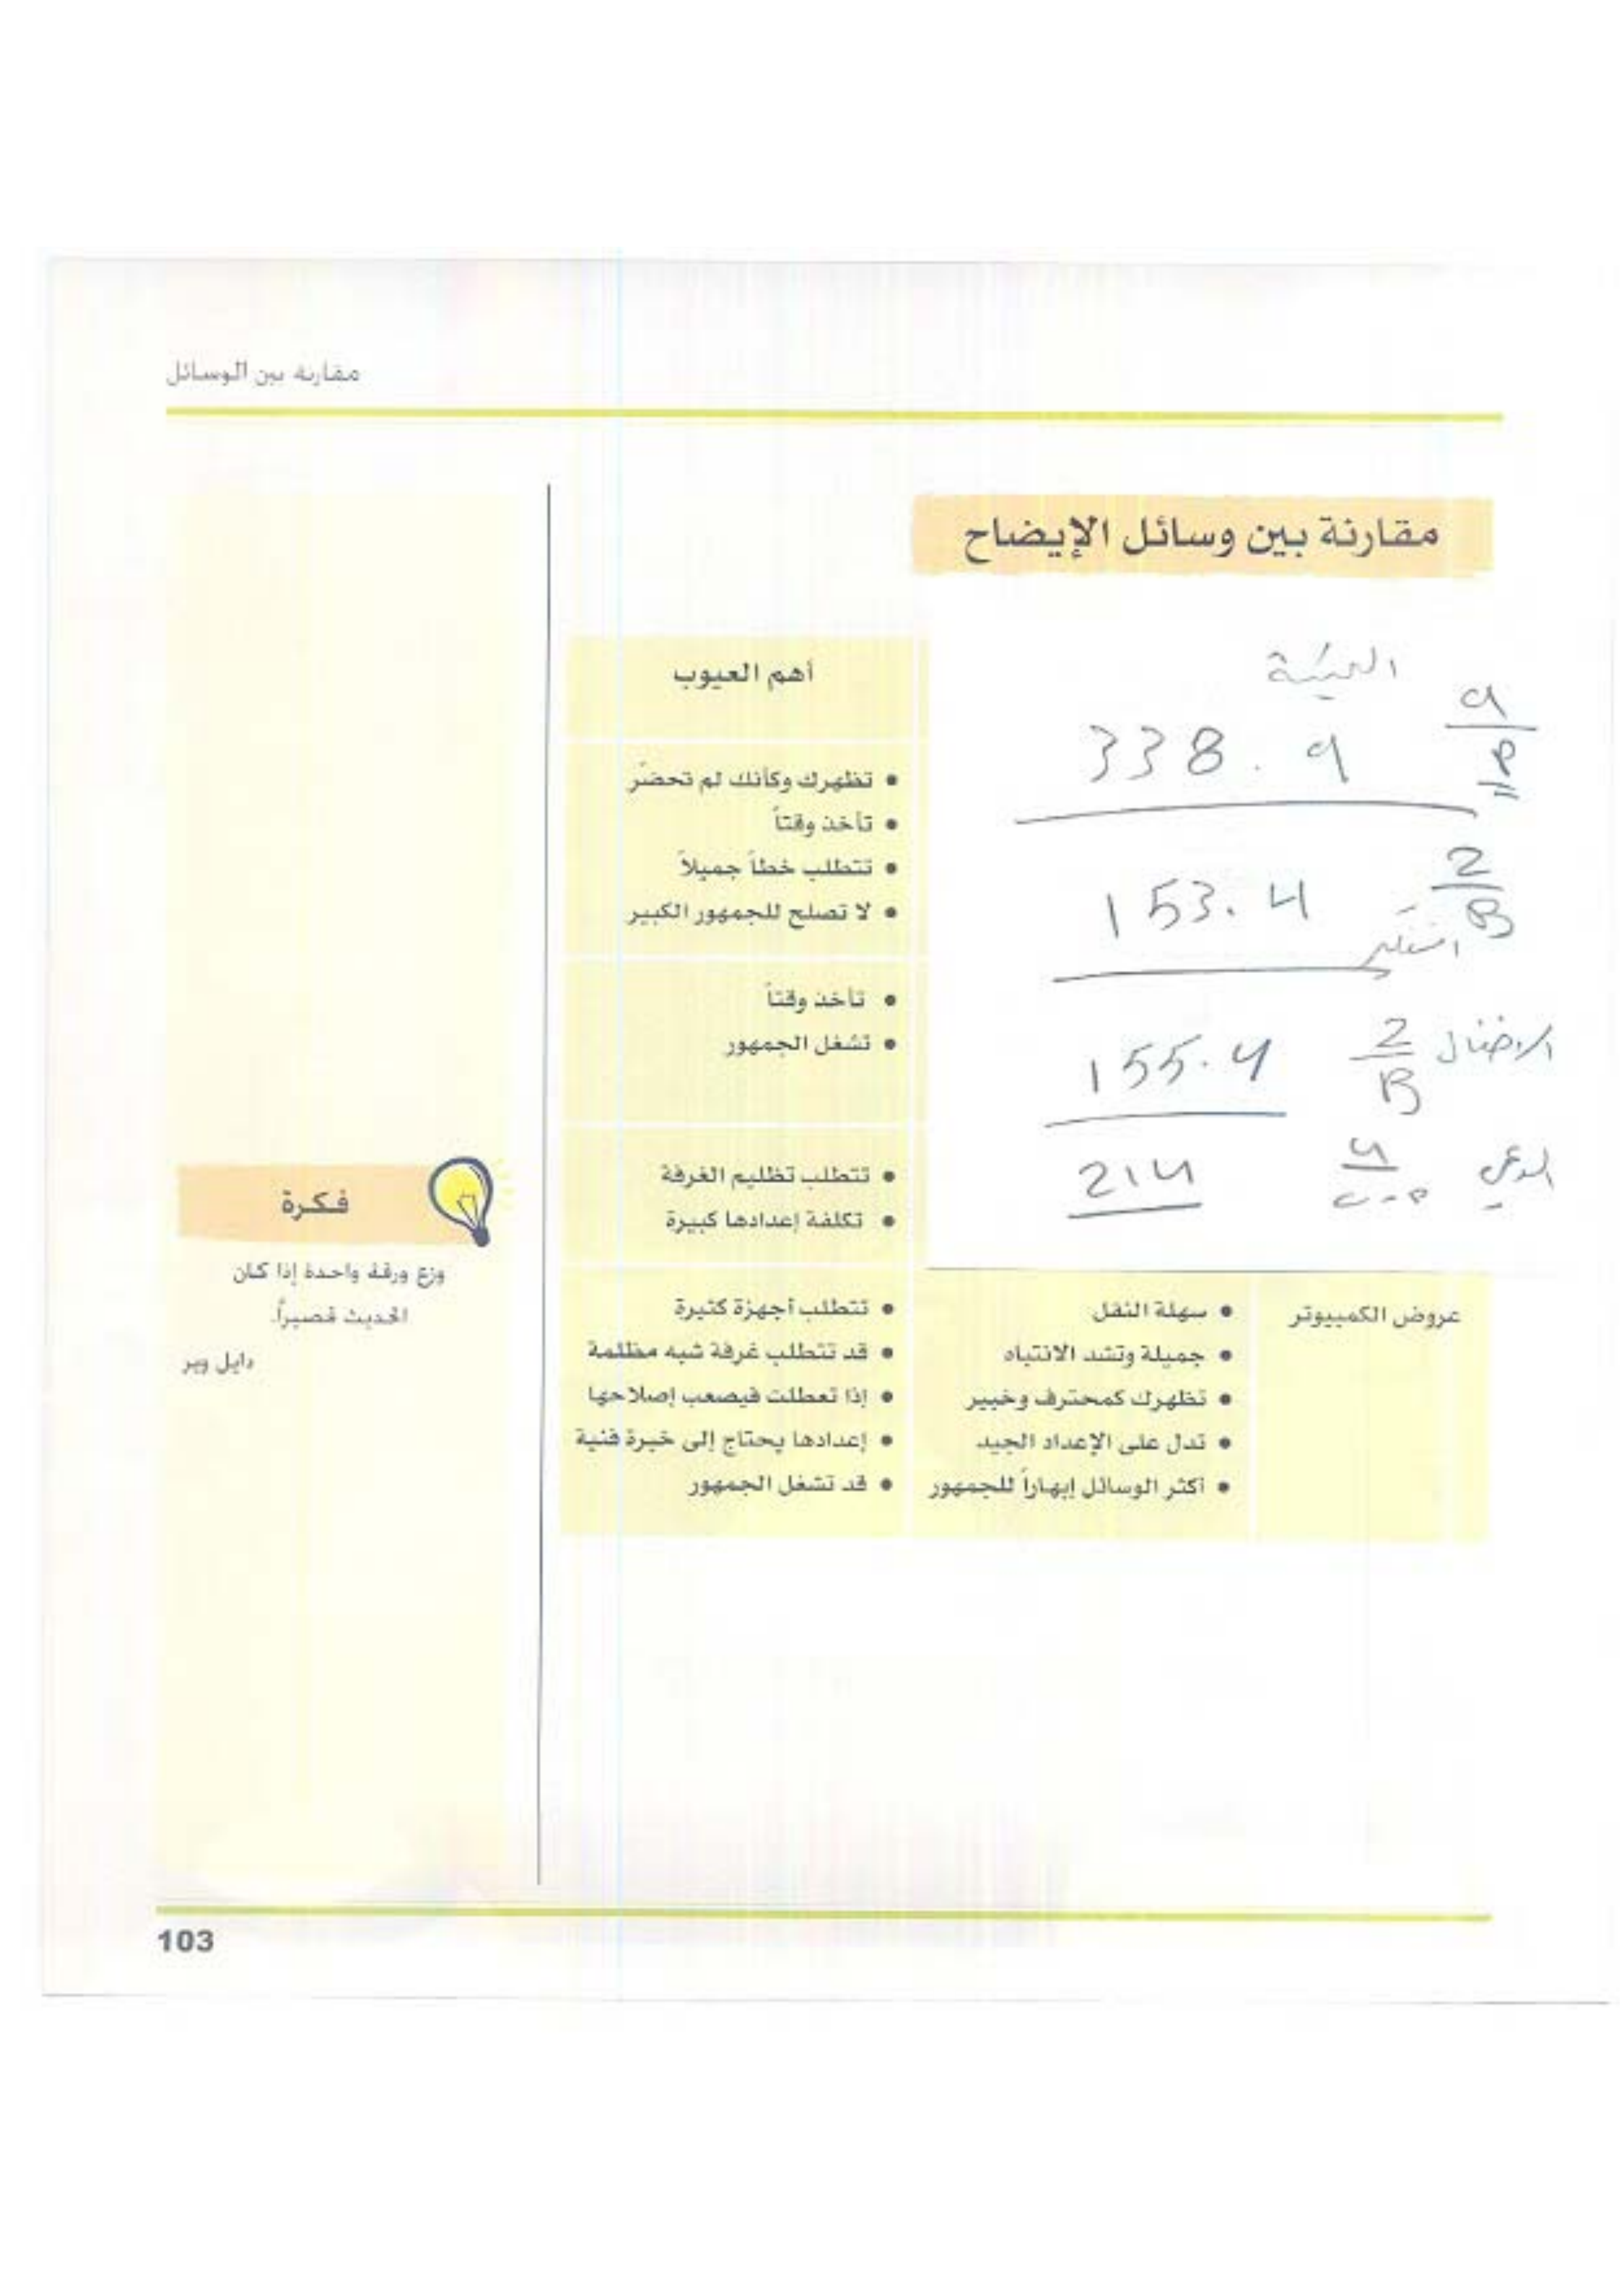 مقارنة بين الوسائل
مقارنة بين وسائل الإيضاح
338.9
2
B
153.4
2
B
155.4
214
أهم العيوب
• تظهرك وكأنك لم تحضّر
• تأخذ وقتاً
• تتطلب خطاً جميلاً
• لا تصلح للجمهور الكبير
• تأخذ وقتاً
• تشغل الجمهور
• تتطلب تظليم الغرفة
• تكلفة إعدادها كبيرة
عروض الكمبيوتر
• سهلة النقل
• جميلة وتشد الانتباه
• تظهرك كمحترف وخبير
• تدل على الإعداد الجيد
• أكثر الوسائل إبهاراً للجمهور
• تتطلب أجهزة كثيرة
• قد تتطلب غرفة شبه مظلمة
• إذا تعطلت فيصعب إصلاحها
• إعدادها يحتاج إلى خبرة فنية
• قد تشغل الجمهور
فكرة
وزع ورقة واحدة إذا كان
الحديث قصيراً.
دايل وير
103